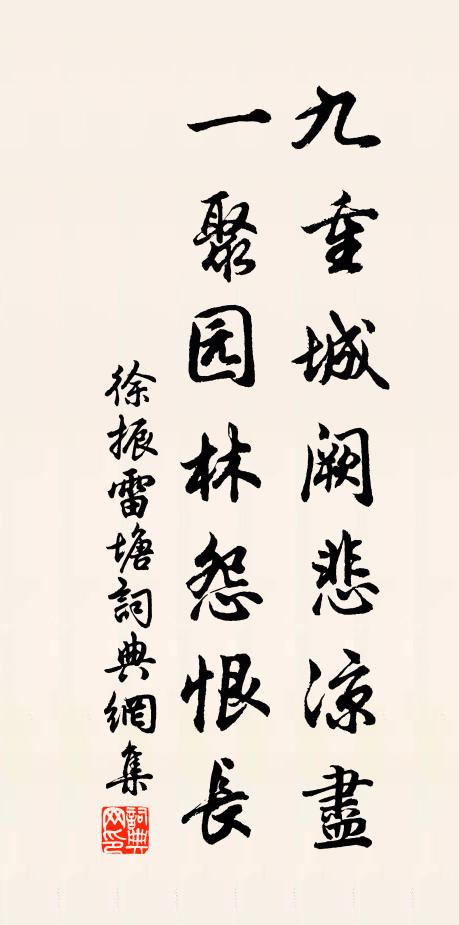 九重城阙悲凉盡
一聚园林怨恨長
徐振雷塘詞典網集
詞典网印